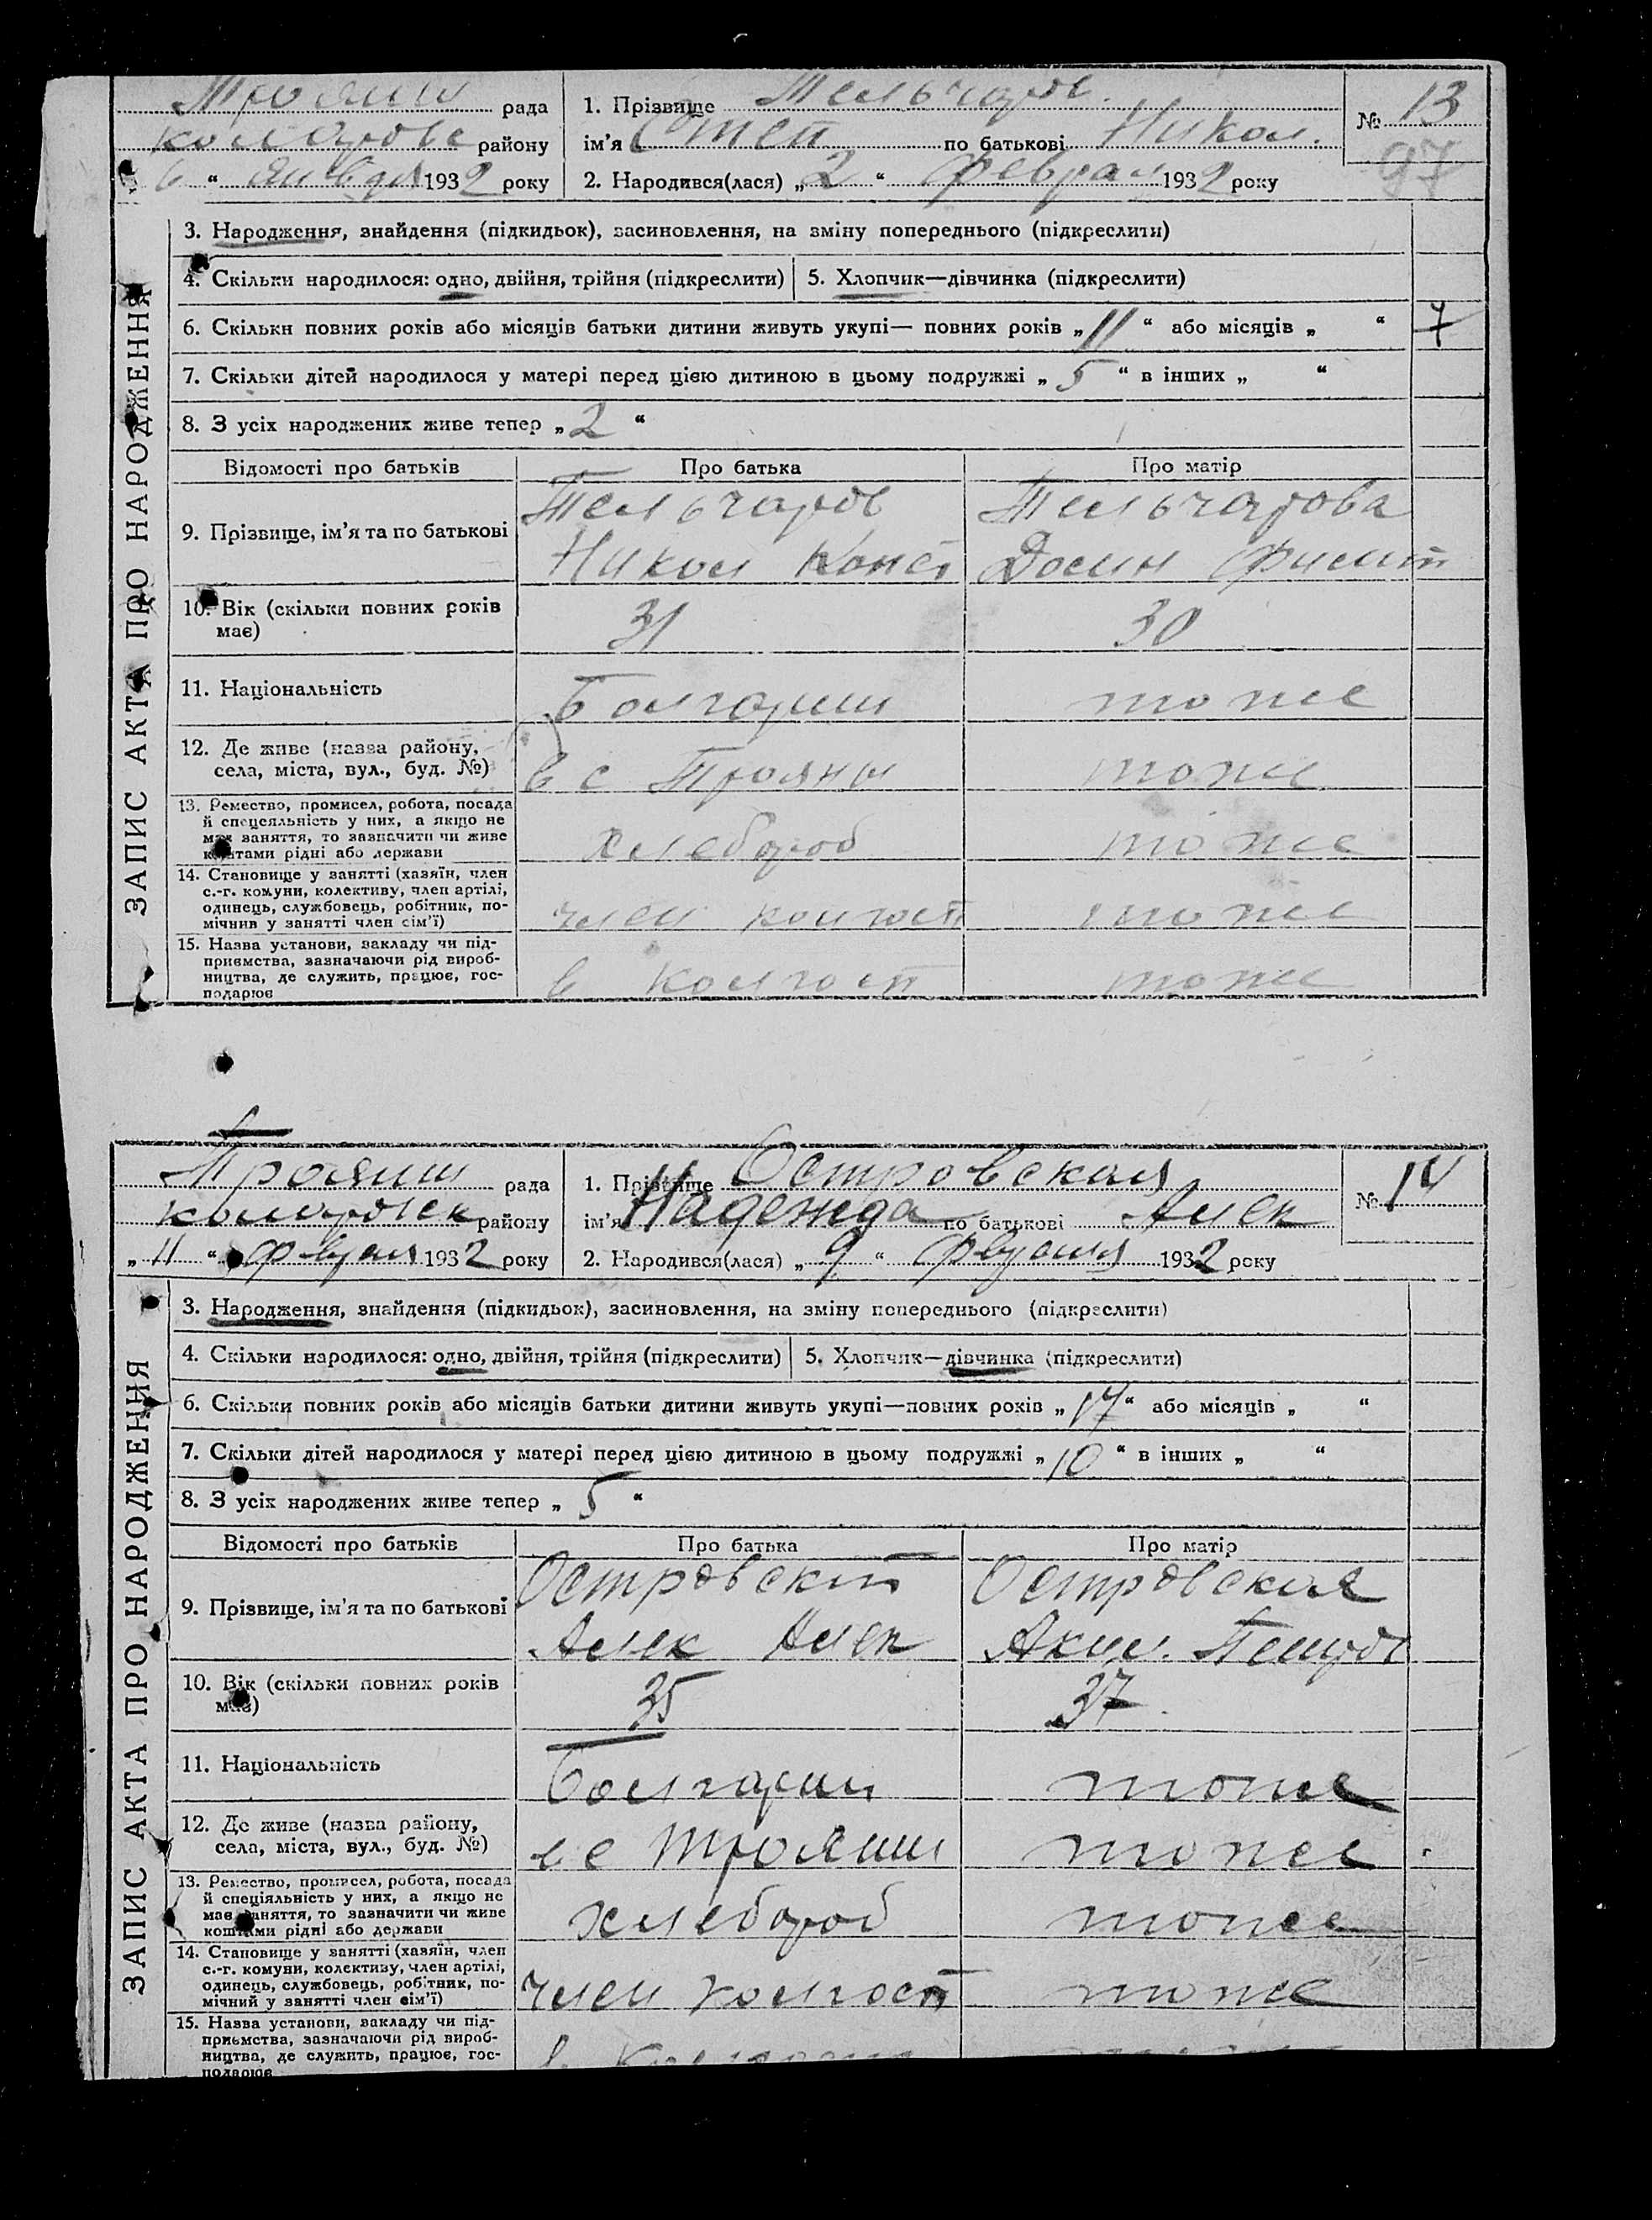 Трояни рада
коларовс району
„ 6 “ Января 1932 року
1. Прізвище Тельчаров.
ім’я Степ по батькові Никол.
2. Народився(лася) „ 2 “ Феврал 1932 року
№ 13
97
ЗАПИС АКТА ПРО НАРОДЖЕННЯ
3. Народження, знайдення (підкидьок), засиновлення, на зміну попереднього (підкреслити)
4. Скільки народилося: одно, двійня, трійня (підкреслити) 5. Хлопчик—дівчинка (підкреслити)
6. Скільки повних років або місяців батьки дитини живуть укупі— повних років „ 11 “ або місяців „ “ 7
7. Скільки дітей народилося у матері перед цією дитиною в цьому подружжі „ 5 “ в інших „ “
8. З усіх народжених живе тепер „ 2 “
Відомості про батьків Про батька Про матір
9. Прізвище, ім’я та по батькові
Тельчаров Тельчарова
Никол Конст Домн Филип
10. Вік (скільки повних років
має)
31 30
11. Національність
Болгарин тоже
12. Де живе (назва району,
села, міста, вул., буд. №)
в с Трояны тоже
13. Ремество, промисел, робота, посада
й спеціяльність у них, а якщо не
має заняття, то зазначити чи живе
коштами рідні або держави
хлебороб тоже
14. Становище у занятті (хазяїн, член
с.-г. комуни, колективу, член артілі,
одинець, службовець, робітник, по-
мічник у занятті член сім’ї)
член колхост тоже
15. Назва установи, закладу чи під-
приємства, зазначаючи рід вироб-
ництва, де служить, працює, гос-
подарює
в колхост тоже
Трояни рада
коларовск району
„ 11 “ февраля 1932 року
1. Прізвище Островская
ім’я Надежда по батькові Алек
2. Народився(лася) „ 9 “ февраля 1932 року
№ 14
ЗАПИС АКТА ПРО НАРОДЖЕННЯ
3. Народження, знайдення (підкидьок), засиновлення, на зміну попереднього (підкреслити)
4. Скільки народилося: одно, двійня, трійня (підкреслити) 5. Хлопчик—дівчинка (підкреслити)
6. Скільки повних років або місяців батьки дитини живуть укупі—повних років „ 17 “ або місяців „ “
7. Скільки дітей народилося у матері перед цією дитиною в цьому подружжі „ 10 “ в інших „ “
8. З усіх народжених живе тепер „ 5 “
Відомості про батьків Про батька Про матір
9. Прізвище, ім’я та по батькові
Островский Островская
Алек Алек Акил. Петров
10. Вік (скільки повних років
має)
35 37
11. Національність
Болгарин тоже
12. Де живе (назва району,
села, міста, вул., буд. №)
в с Трояни тоже
13. Ремество, промисел, робота, посада
й спеціяльність у них, а якщо не
має заняття, то зазначити чи живе
коштами рідні або держави
хлебороб тоже
14. Становище у занятті (хазяїн, член
с.-г. комуни, колективу, член артілі,
одинець, службовець, робітник, по-
мічний у занятті член сім’ї)
член колхост тоже
15. Назва установи, закладу чи під-
приємства, зазначаючи рід вироб-
ництва, де служить, працює, гос-
подарює